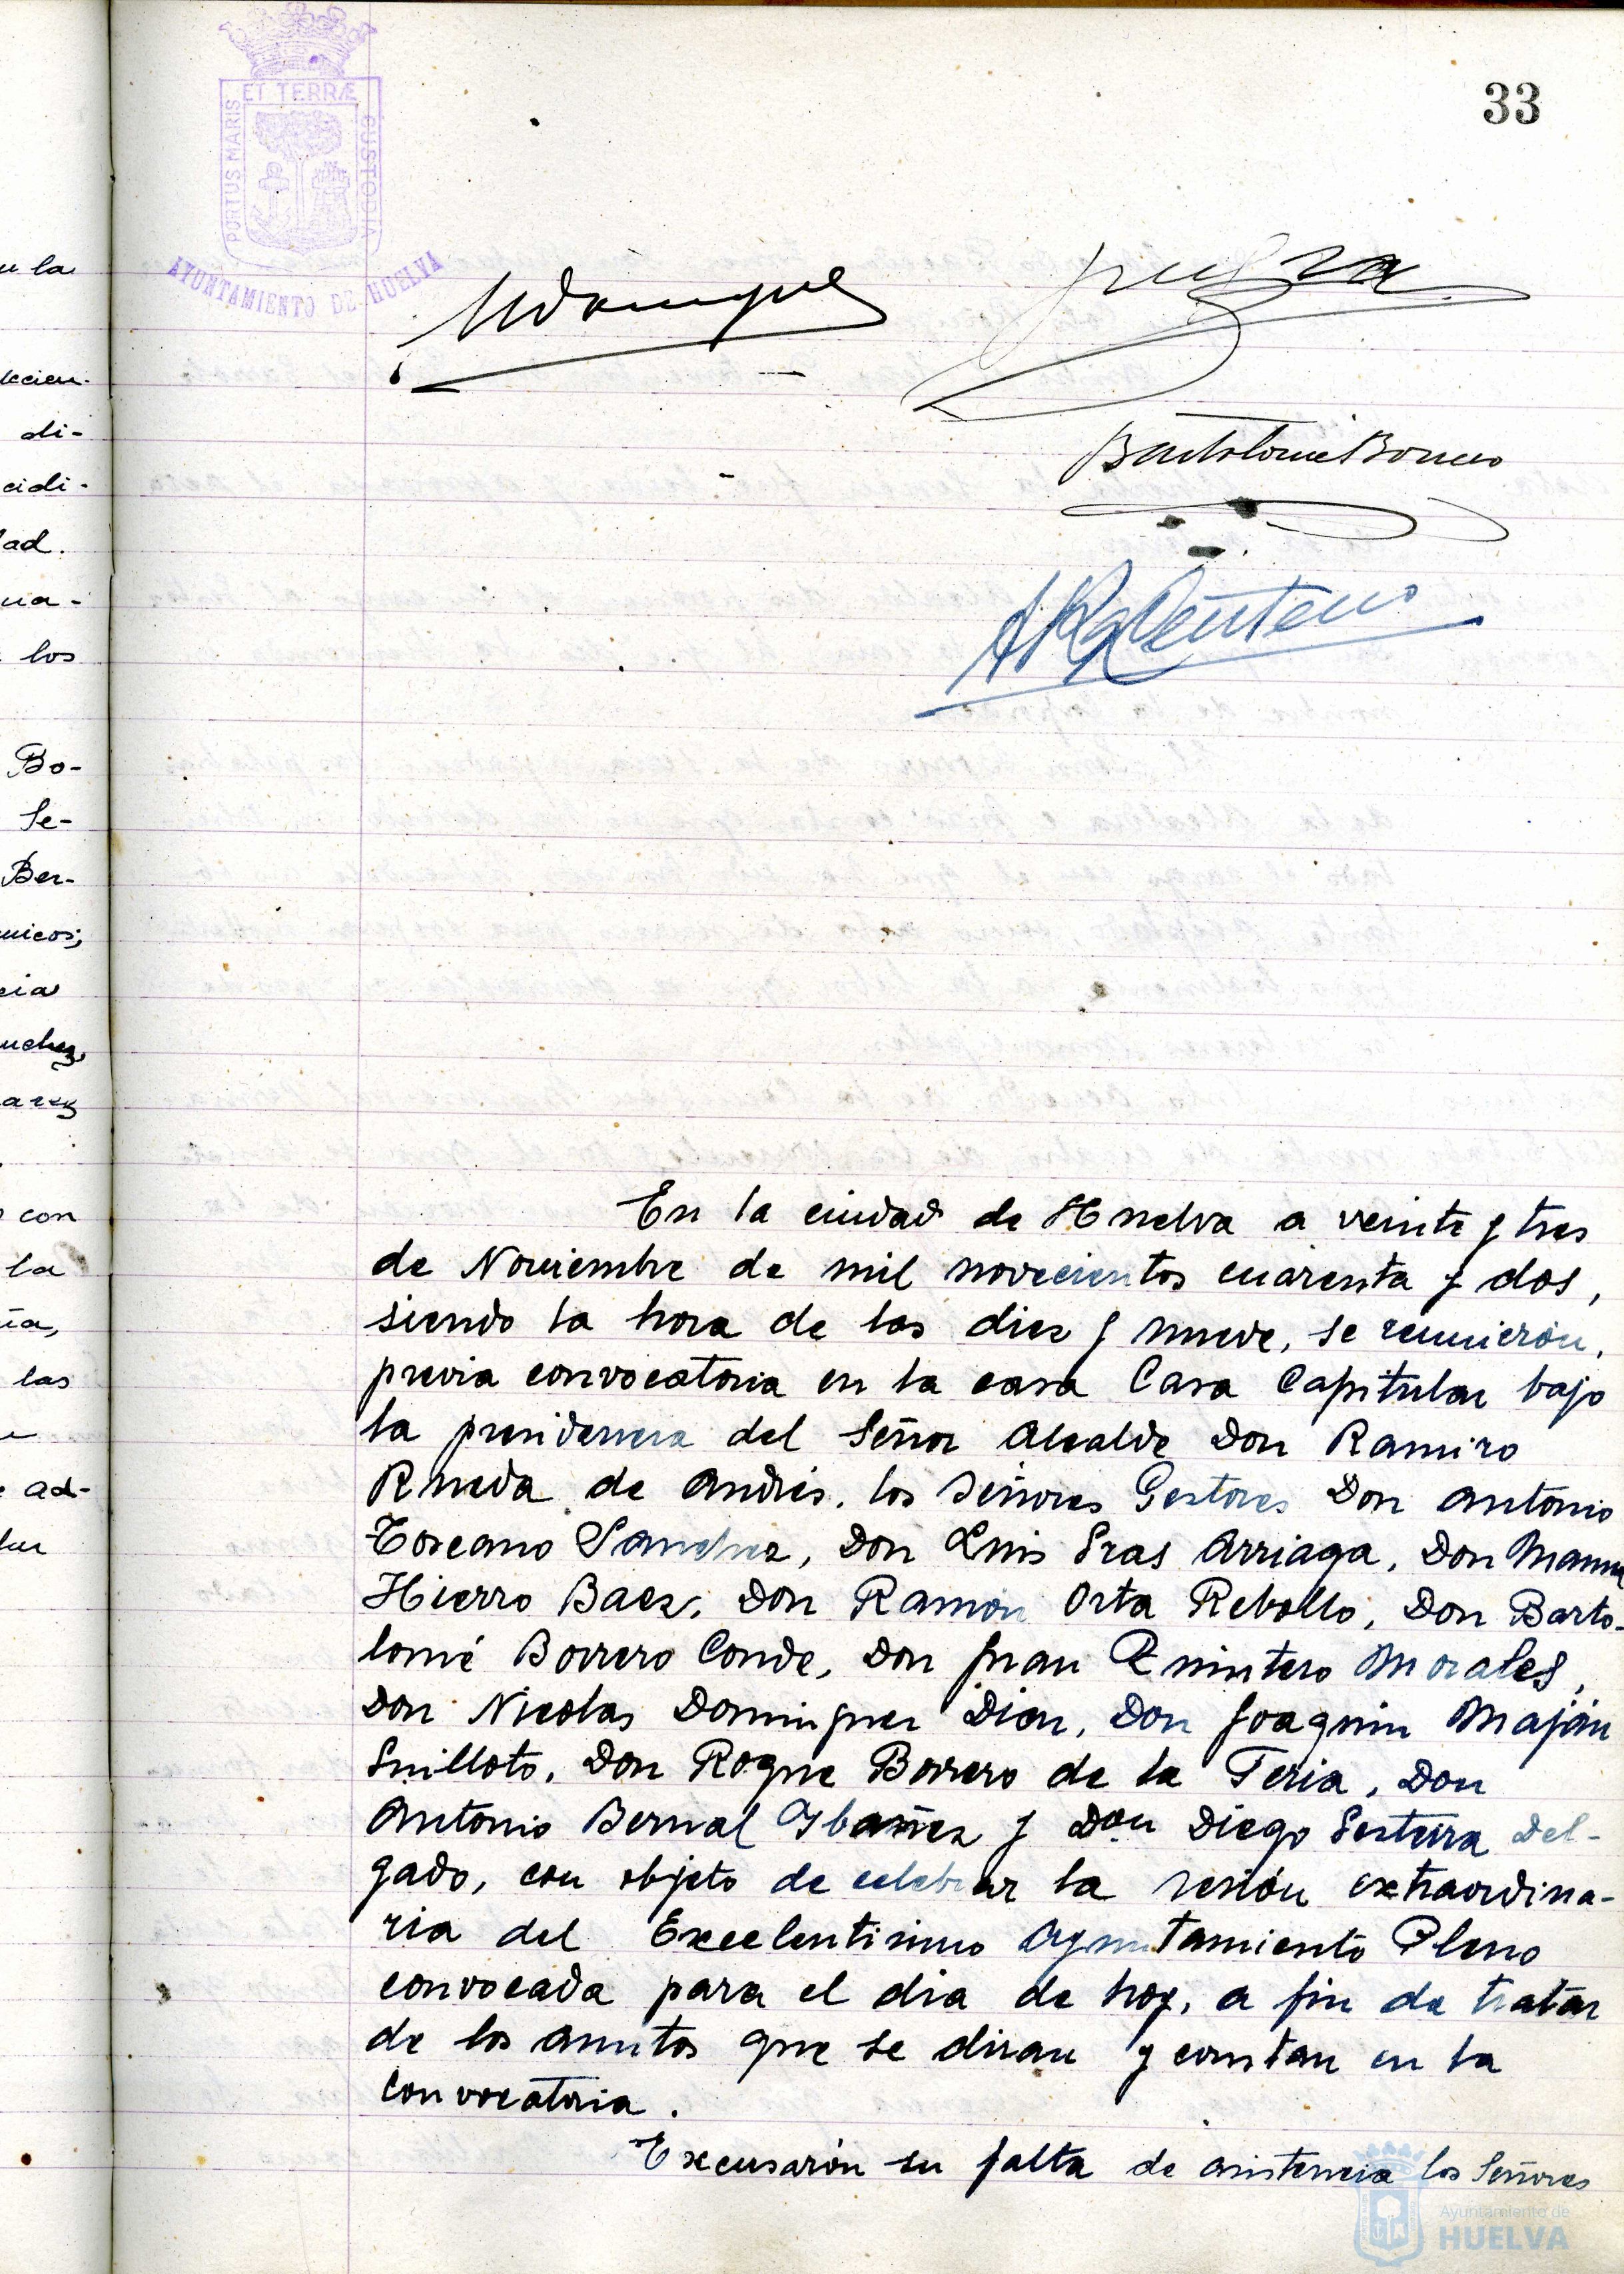 33
ET TERRÆ
PORTUS MARIS
CUSTODIA
AYUNTAMIENTO DE HUELVA
Bartolomé Borrero
u la
di-
cidi-
ad.
ua-
los
Bo-
Se-
Ber-
micos;
cia
con
la
ia,
las
ad-
En la ciudad de Huelva a veinte y tres
de Noviembre de mil novecientos cuarenta y dos,
siendo la hora de las diez y nueve, se reunieron,
previa convocatoria en la casa Casa Capitular bajo
la presidencia del Señor Alcalde Don Ramiro
Rueda de Andrés, los Señores Gestores Don Antonio
Toscano Sanchez, Don Luis Sras Arriaga, Don Manuel
Hierro Baez, Don Ramón Orta Rebollo, Don Barto-
lomé Borrero Conde, Don Juan Quintero Morales,
Don Nicolas Dominguez Diaz, Don Joaquin Maján
Guilloto, Don Roque Borrero de la Feria, Don
Antonio Bernal Ybañez y Don Diego Sesteira Del-
gado, con objeto de celebrar la sesión extraordina-
ria del Excelentisimo Ayuntamiento Pleno
convocada para el dia de hoy, a fin de tratar
de los asuntos que se diran y constan en la
convocatoria.
Excusarón su falta de asistencia los Señores
Ayuntamiento de
HUELVA